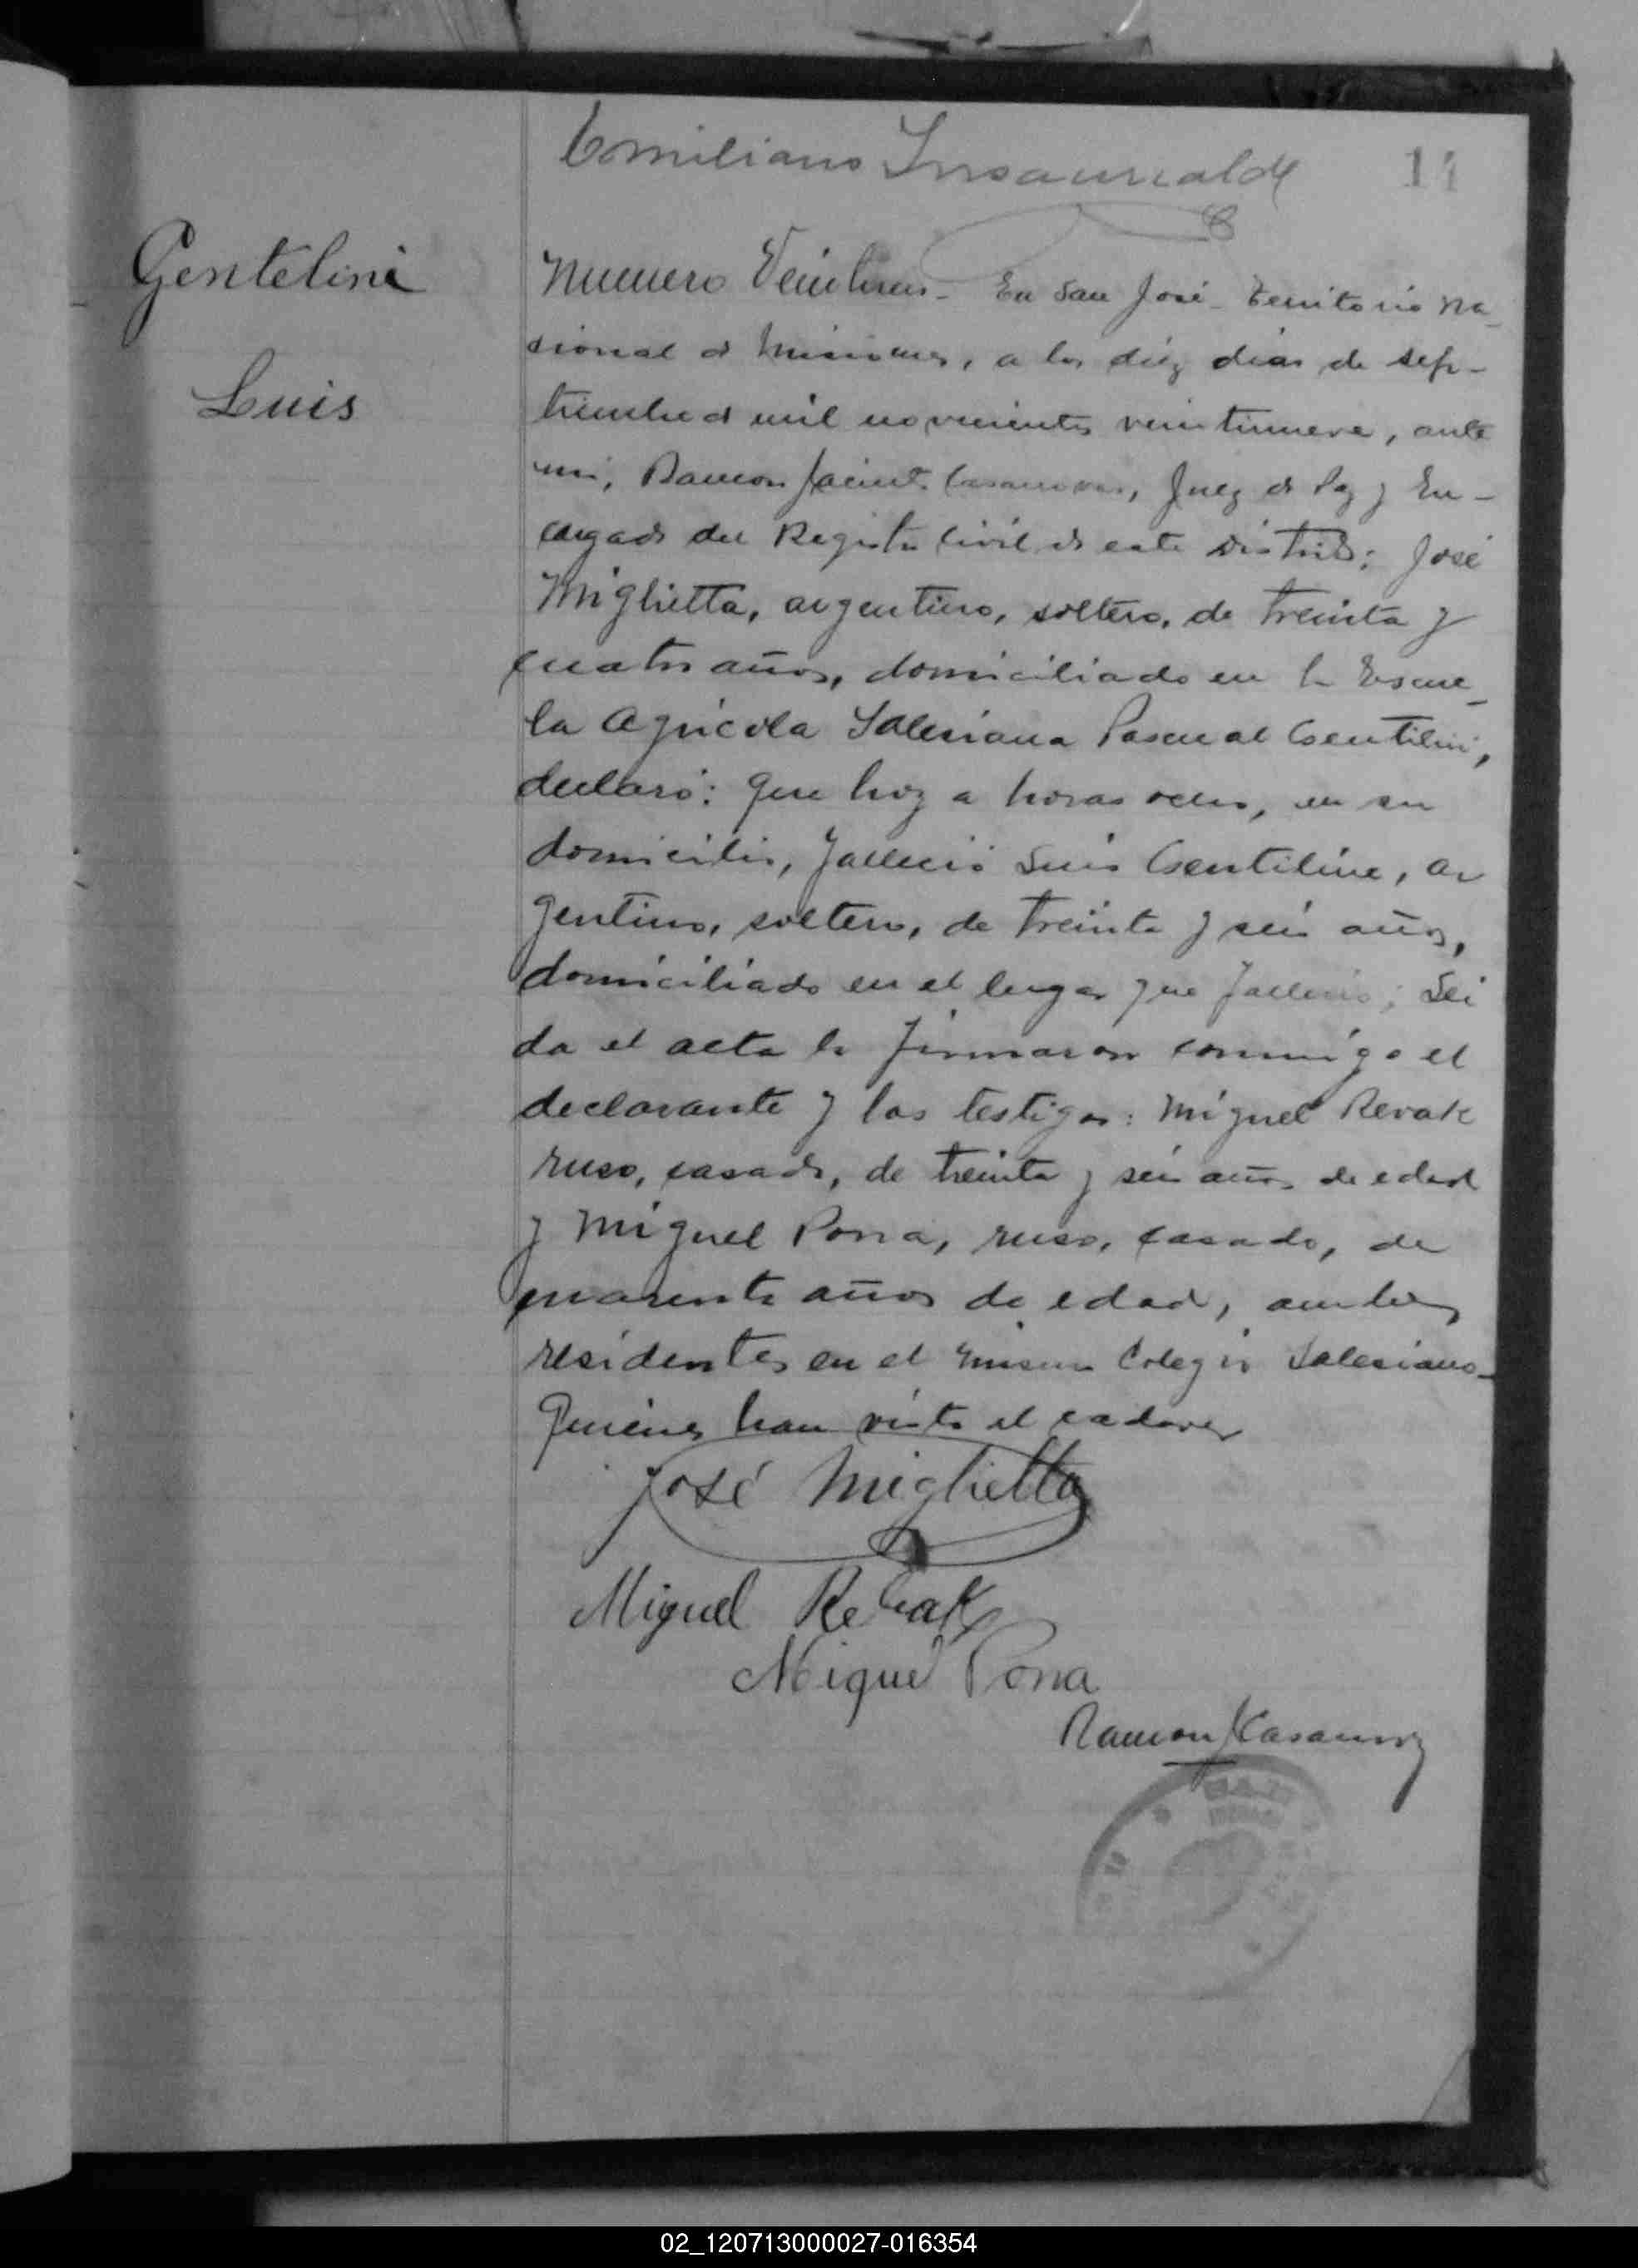 Emiliano Insaurralde
11
Gentelini
Luis
Numero Veintitres - En San José - Territorio Na-
cional d Misiones, a los diéz dias de sep-
tiembre d mil novecientos veintinueve, ante
mi, Ramon Jacinto Casanovas, Juez d Paz y En-
cargado del Registro Civil d este distrito: José
Miglietta, argentino, soltero, de treinta y
cuatro años, domiciliado en la Escue-
la Agricola Salesiana Pascual Gentilini,
declaró: Que hoy a horas ocho, en su
domicilio, falleció Luis Gentiline, ar
gentino, soltero, de treinta y seis años,
domiciliado en el lugar que falleció; Lei
da el acta la firmaron conmigo el
declarante y los testigos: Miguel Revak
ruso, casado, de treinta y seis años de edad
y Miguel Pona, ruso, casado, de
cuarenta años de edad, ambos
residentes en el mismo Colegio Salesiano-
Quienes han visto el cadaver
José Miglietta
Miguel Revak
Miguel Pona
Ramon J Casanovas
02_120713000027-016354